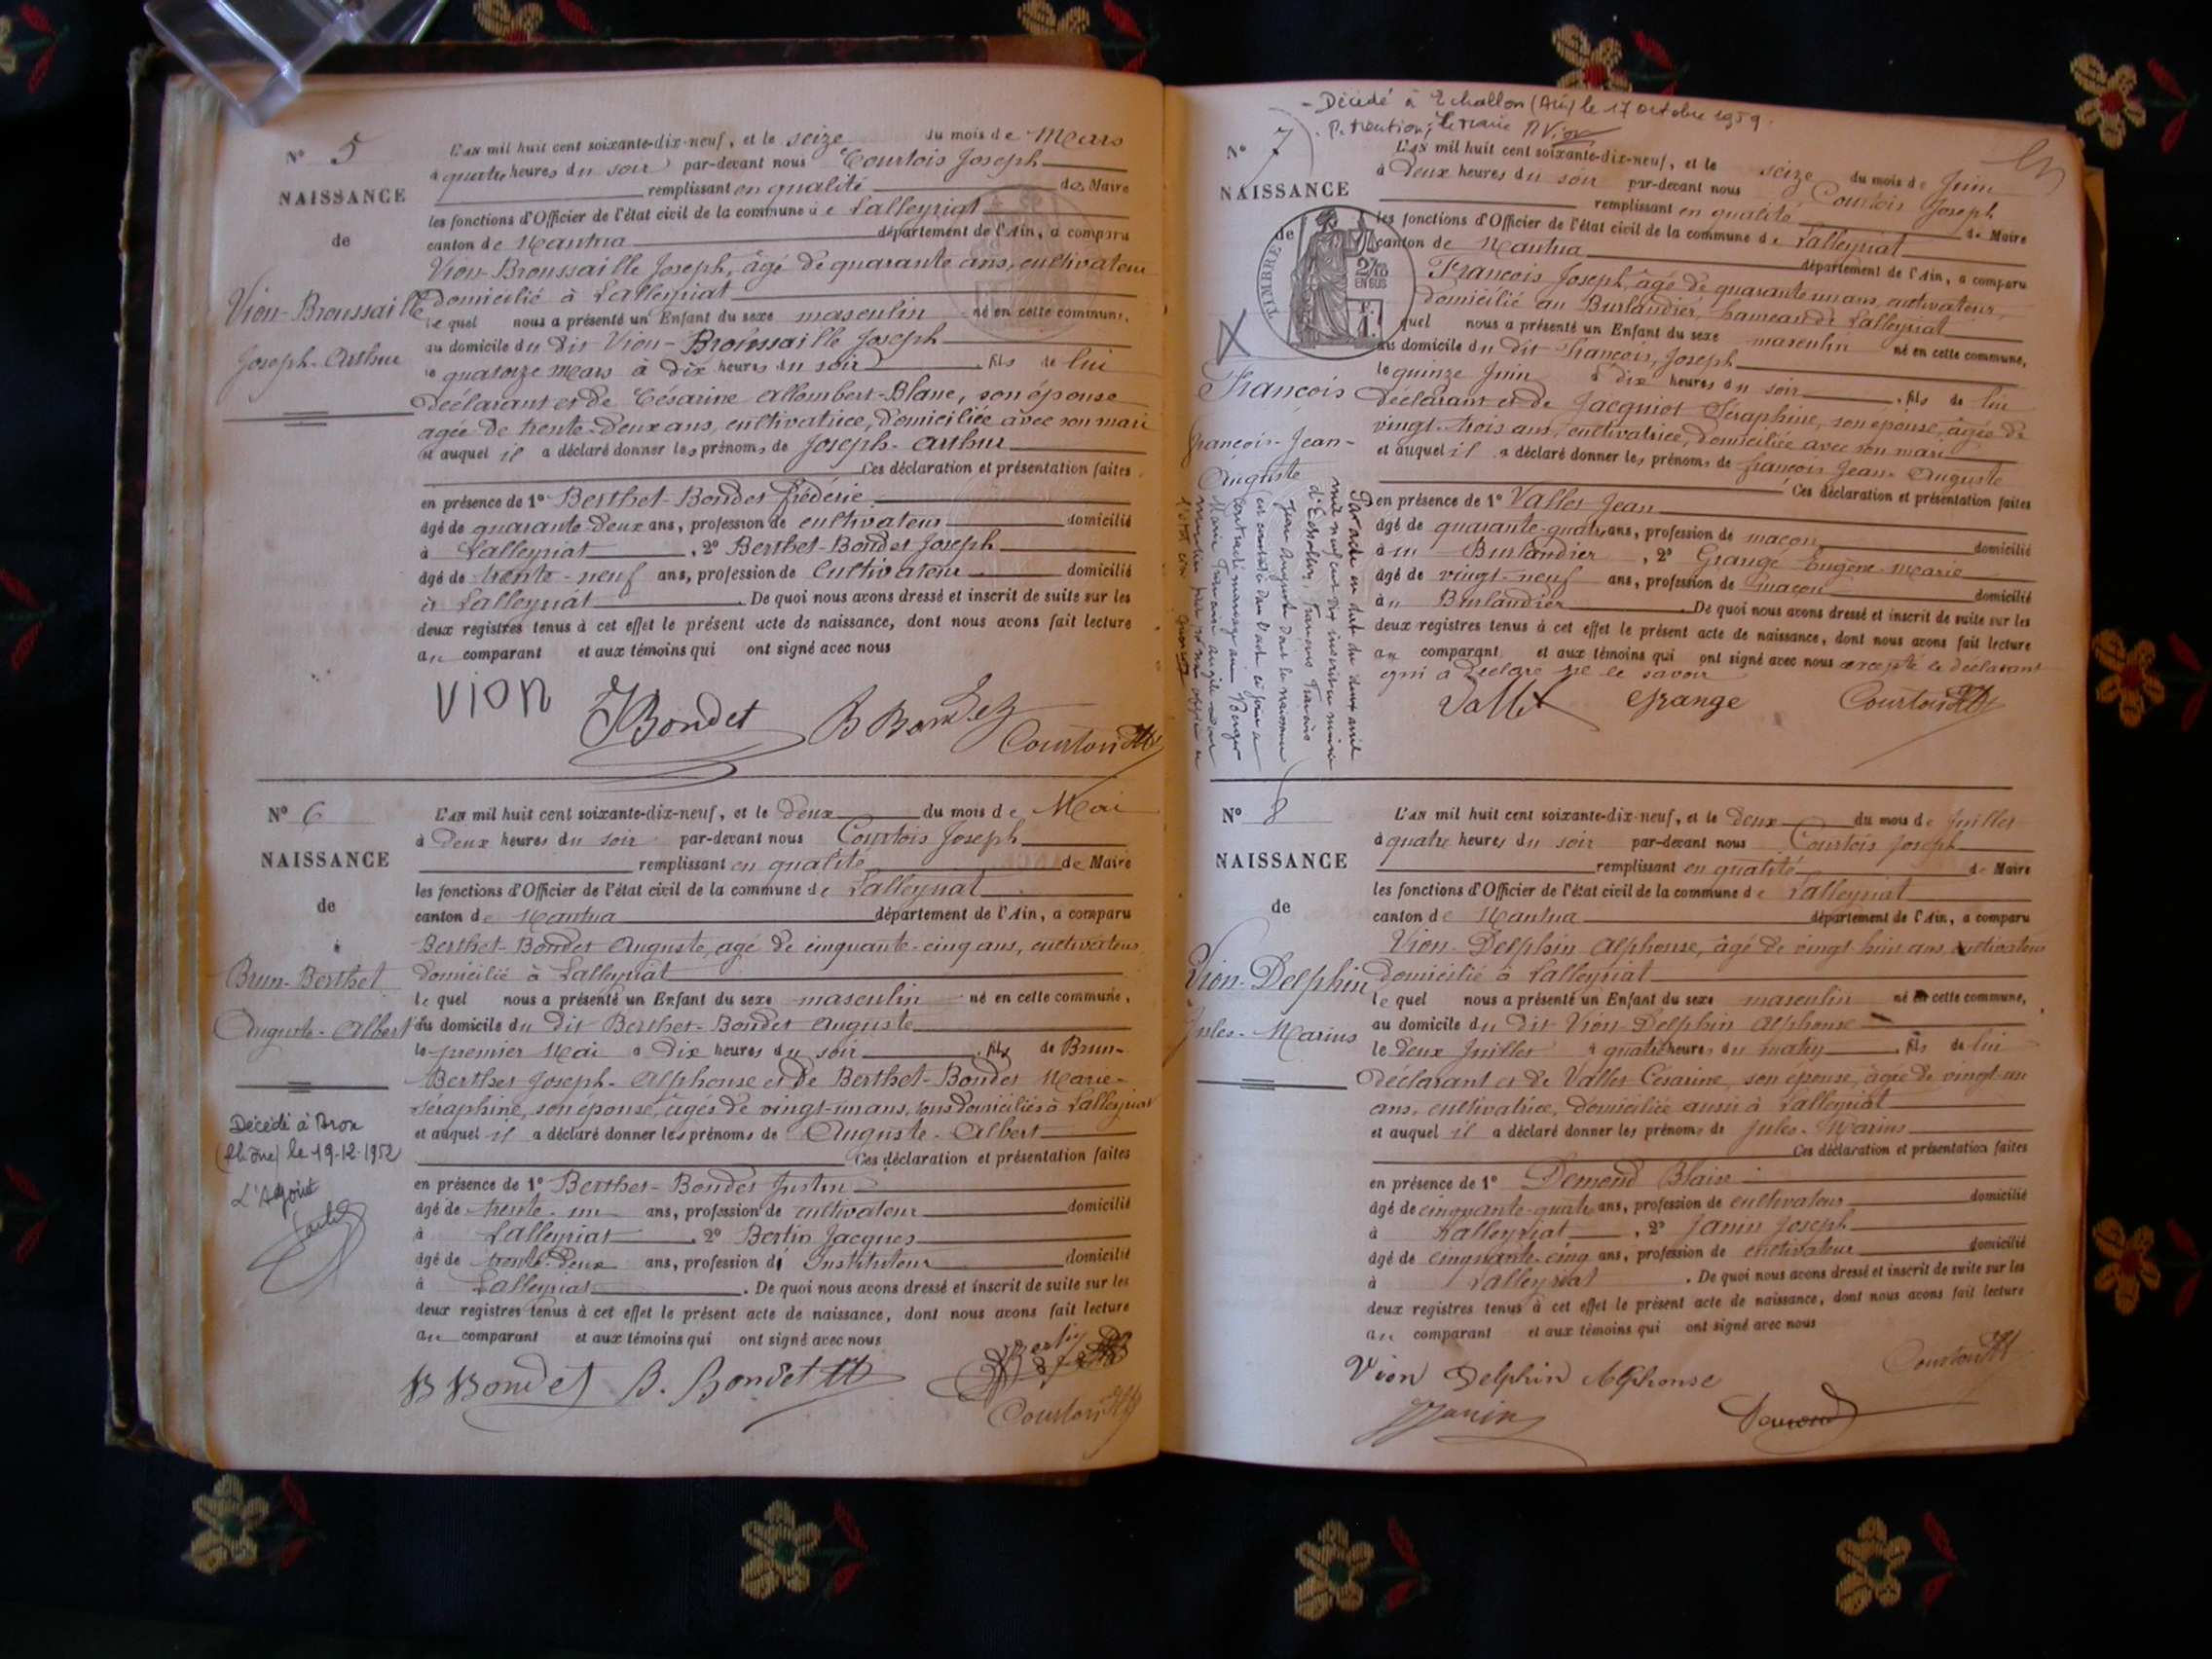 N° 5
NAISSANCE
de
Vion-Broussaille
Joseph-Arthur
L'AN mil huit cent soixante-dix-neuf, et le seize du mois de Mars
à quatre heures du soir par-devant nous Courtois Joseph
remplissant en qualité de Maire
les fonctions d'Officier de l'état civil de la commune de Lalleyriat
canton de Nantua département de l'Ain, a comparu
Vion-Broussaille Joseph, âgé de quarante ans, cultivateur
domicilié à Lalleyriat
le quel nous a présenté un Enfant du sexe masculin né en cette commune,
au domicile du dit Vion-Broussaille Joseph
le quatorze Mars à dix heures du soir, fils de lui
déclarant et de Césarine Allombert-Blanc, son épouse
agée de trente-deux ans, cultivatrice, domiciliée avec son mari
et auquel il a déclaré donner les prénoms de Joseph-Arthur
Ces déclaration et présentation faites
en présence de 1° Berthet-Bondet frédéric
âgé de quarante-deux ans, profession de cultivateur domicilié
à Lalleyriat, 2° Berthet-Bondet Joseph
âgé de trente-neuf ans, profession de Cultivateur domicilié
à Lalleyriat. De quoi nous avons dressé et inscrit de suite sur les
deux registres tenus à cet effet le présent acte de naissance, dont nous avons fait lecture
au comparant et aux témoins qui ont signé avec nous
vion Bondet B Bondet Courtois
N° 6
NAISSANCE
de
Brun-Berthet
Auguste-Albert
Décédé à Bron
(Rhône) le 19-12-1952
L'Adjoint
L'AN mil huit cent soixante-dix-neuf, et le deux du mois de Mai
à Deux heures du soir par-devant nous Courtois Joseph
remplissant en qualité de Maire
les fonctions d'Officier de l'état civil de la commune de Lalleyriat
canton de Nantua département de l'Ain, a comparu
Berthet-Bondet Auguste, agé de cinquante-cinq ans, cultivateur
domicilié à Lalleyriat
le quel nous a présenté un Enfant du sexe masculin né en cette commune,
au domicile du dit Berthet-Bondet Auguste
le premier Mai à Dix heures du soir, fils de Brun-
Berthet Joseph-Alphonse et de Berthet-Bondet Marie-
Séraphine, son épouse, âgés de vingt-un ans, tous domiciliés à Lalleyriat
et auquel il a déclaré donner les prénoms de Auguste-Albert
Ces déclaration et présentation faites
en présence de 1° Berthet-Bondet Justin
âgé de trente-un ans, profession de cultivateur domicilié
à Lalleyriat, 2° Bertin Jacques
âgé de trente-deux ans, profession d'Instituteur domicilié
à Lalleyriat. De quoi nous avons dressé et inscrit de suite sur les
deux registres tenus à cet effet le présent acte de naissance, dont nous avons fait lecture
au comparant et aux témoins qui ont signé avec nous
B Bondet B. Bondet Bertin
Courtois
- Décédé à Echallon (Ain) le 17 octobre 1959.
P. mention; le maire Vion
N° 7
NAISSANCE
de
TIMBRE
2/10 EN SUS
François
françois-Jean-
Auguste
Par acte en date du deux avril
mil neuf cent dix inscrit en mairie
d'Echallon, François François
Jean Auguste dont la naissance
est constatée dans l'acte ci-contre a
contracté mariage avec
Marie
L'AN mil huit cent soixante-dix-neuf, et le seize du mois de Juin
à Deux heures du soir par-devant nous Courtois Joseph
remplissant en qualité de Maire
les fonctions d'Officier de l'état civil de la commune de Lalleyriat
canton de Nantua département de l'Ain, a comparu
François Joseph, âgé de quarante un ans, cultivateur,
domicilié au Burlandier, hameau de Lalleyriat
quel nous a présenté un Enfant du sexe masculin né en cette commune,
au domicile du dit François, Joseph
le quinze Juin à dix heures du soir, fils de lui
déclarant et de Jacquiot Séraphine, son épouse, âgée de
vingt-trois ans, cultivatrice, domiciliée avec son mari
et auquel il a déclaré donner les prénoms de françois Jean-Auguste
Ces déclaration et présentation faites
en présence de 1° Vallet Jean
âgé de quarante-quatre ans, profession de maçon domicilié
au Burlandier, 2° Grange Eugène-Marie
âgé de vingt-neuf ans, profession de maçon domicilié
au Burlandier. De quoi nous avons dressé et inscrit de suite sur les
deux registres tenus à cet effet le présent acte de naissance, dont nous avons fait lecture
au comparant et aux témoins qui ont signé avec nous excepté le déclarant
qui a déclaré ne le savoir
Vallet Grange Courtois
N° 8
NAISSANCE
de
Vion-Delphin
Jules-Marius
L'AN mil huit cent soixante-dix-neuf, et le Deux du mois de Juillet
à quatre heures du soir par-devant nous Courtois Joseph
remplissant en qualité de Maire
les fonctions d'Officier de l'état civil de la commune de Lalleyriat
canton de Nantua département de l'Ain, a comparu
Vion-Delphin Alphonse, âgé de vingt huit ans cultivateur
domicilié à Lalleyriat
le quel nous a présenté un Enfant du sexe masculin né en cette commune,
au domicile du dit Vion-Delphin Alphonse
le Deux Juillet à quatre heures du matin, fils de lui
déclarant et de Vallet Césarine, son épouse, âgée de vingt-un
ans, cultivatrice, domiciliée aussi à Lalleyriat
et auquel il a déclaré donner les prénoms de Jules-Marius
Ces déclaration et présentation faites
en présence de 1° Demond Blaise
âgé de cinquante-quatre ans, profession de cultivateur domicilié
à Lalleyriat, 2° Janin Joseph
âgé de cinquante-cinq ans, profession de cultivateur domicilié
à Lalleyriat. De quoi nous avons dressé et inscrit de suite sur les
deux registres tenus à cet effet le présent acte de naissance, dont nous avons fait lecture
au comparant et aux témoins qui ont signé avec nous
Vion Delphin Alphonse Courtois
Janin Demond